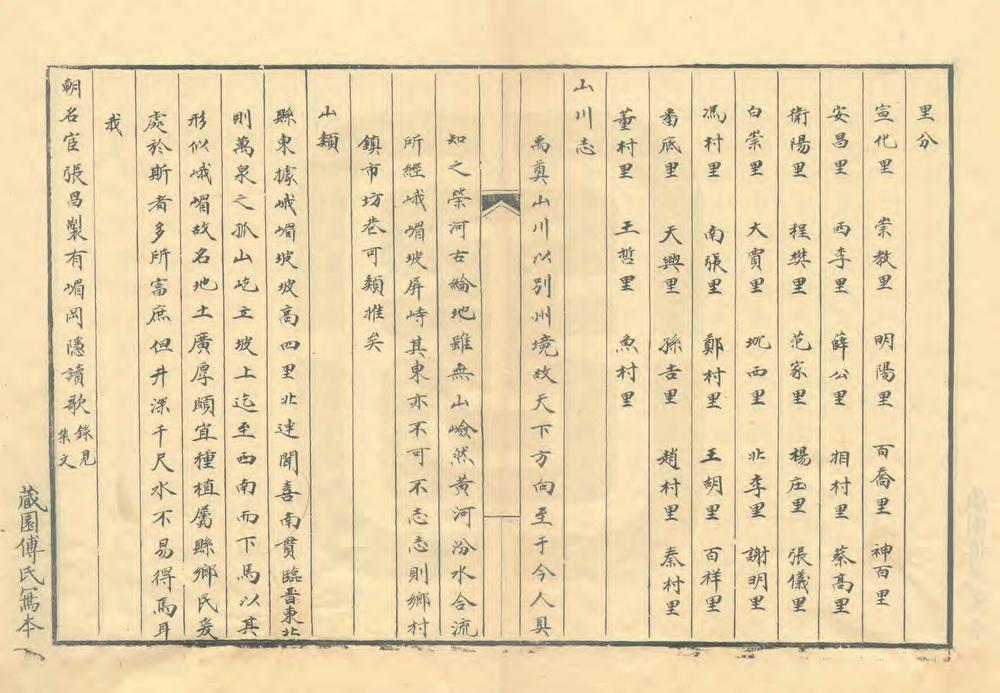 里分
宣化里 崇教里 明陽里 百喬里 神百里
安昌里 西李里 薛公里 相村里 蔡高里
衛陽里 程樊里 范家里 楊庄里 張儀里
白崇里 大賈里 坬西里 北李里 謝明里
馮村里 南張里 鄭村里 王胡里 百祥里
畨底里 天興里 孫吉里 趙村里 秦村里
董村里 王惁里 魚村里
山川志
禹奠山川以別州境故天下方向至于今人具
知之榮河古綸地雖無山嶮然黃河汾水合流
所經峨嵋坡屏峙其東亦不可不志志則鄉村
鎮市坊巷可類推矣
山類
縣東據峨嵋坡坡高四里北連聞喜南貫臨晋東北
則萬泉之孤山屹立坡上迄至西南而下馬以其
形似峨嵋故名地土廣厚頗宜種植屬縣鄉民爰
處於斯者多所富庶但井深千尺水不易得馬耳
我
朝名宦張昌製有嵋岡隱讀歌錄見文集
藏園傅氏寫本